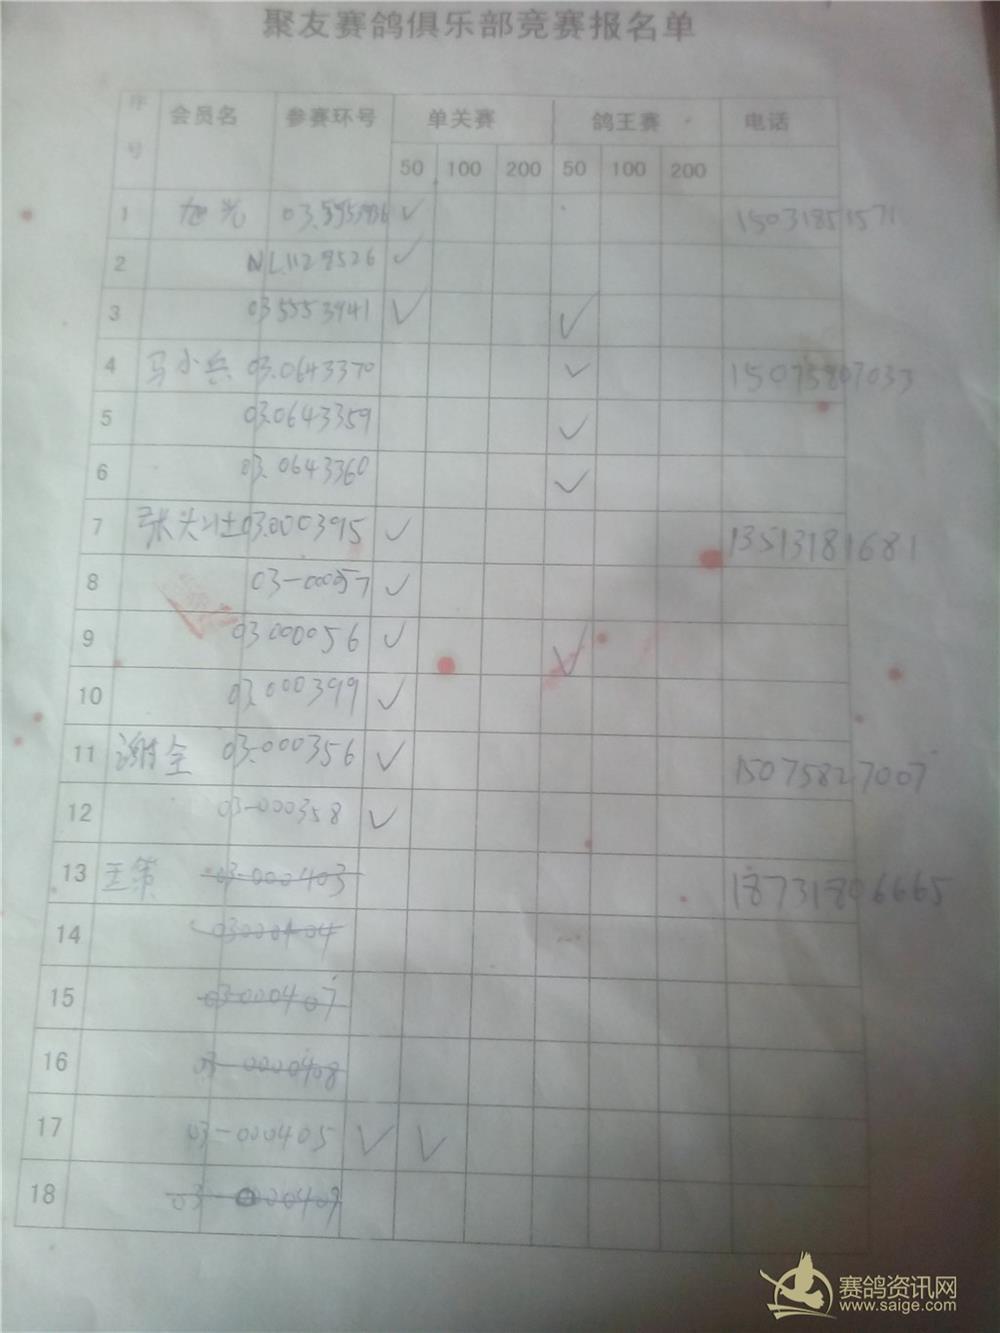 聚友赛鸽俱乐部竞赛报名单
序号 会员名 参赛环号 单关赛 鸽王赛 电话
50 100 200 50 100 200
1 旭光 ✓ 15031851571
2 NL1128526 ✓
3 03 5553941 ✓ ✓
4 马小兵 03.0643370 ✓ 15075807033
5 03.0643359 ✓
6 03.0643360 ✓
7 03.000395 ✓ 13513181681
8 03-000057 ✓
9 03 000056 ✓ ✓
10 03.000399 ✓
11 谢全 03-000356 ✓ 15075827007
12 03-000358 ✓
13 王策 03-000403 18731806665
14 03000404
15 03-000407
16 03-0000408
17 03-000405 ✓ ✓
18 03-0000409
赛鸽资讯网
www.saige.com